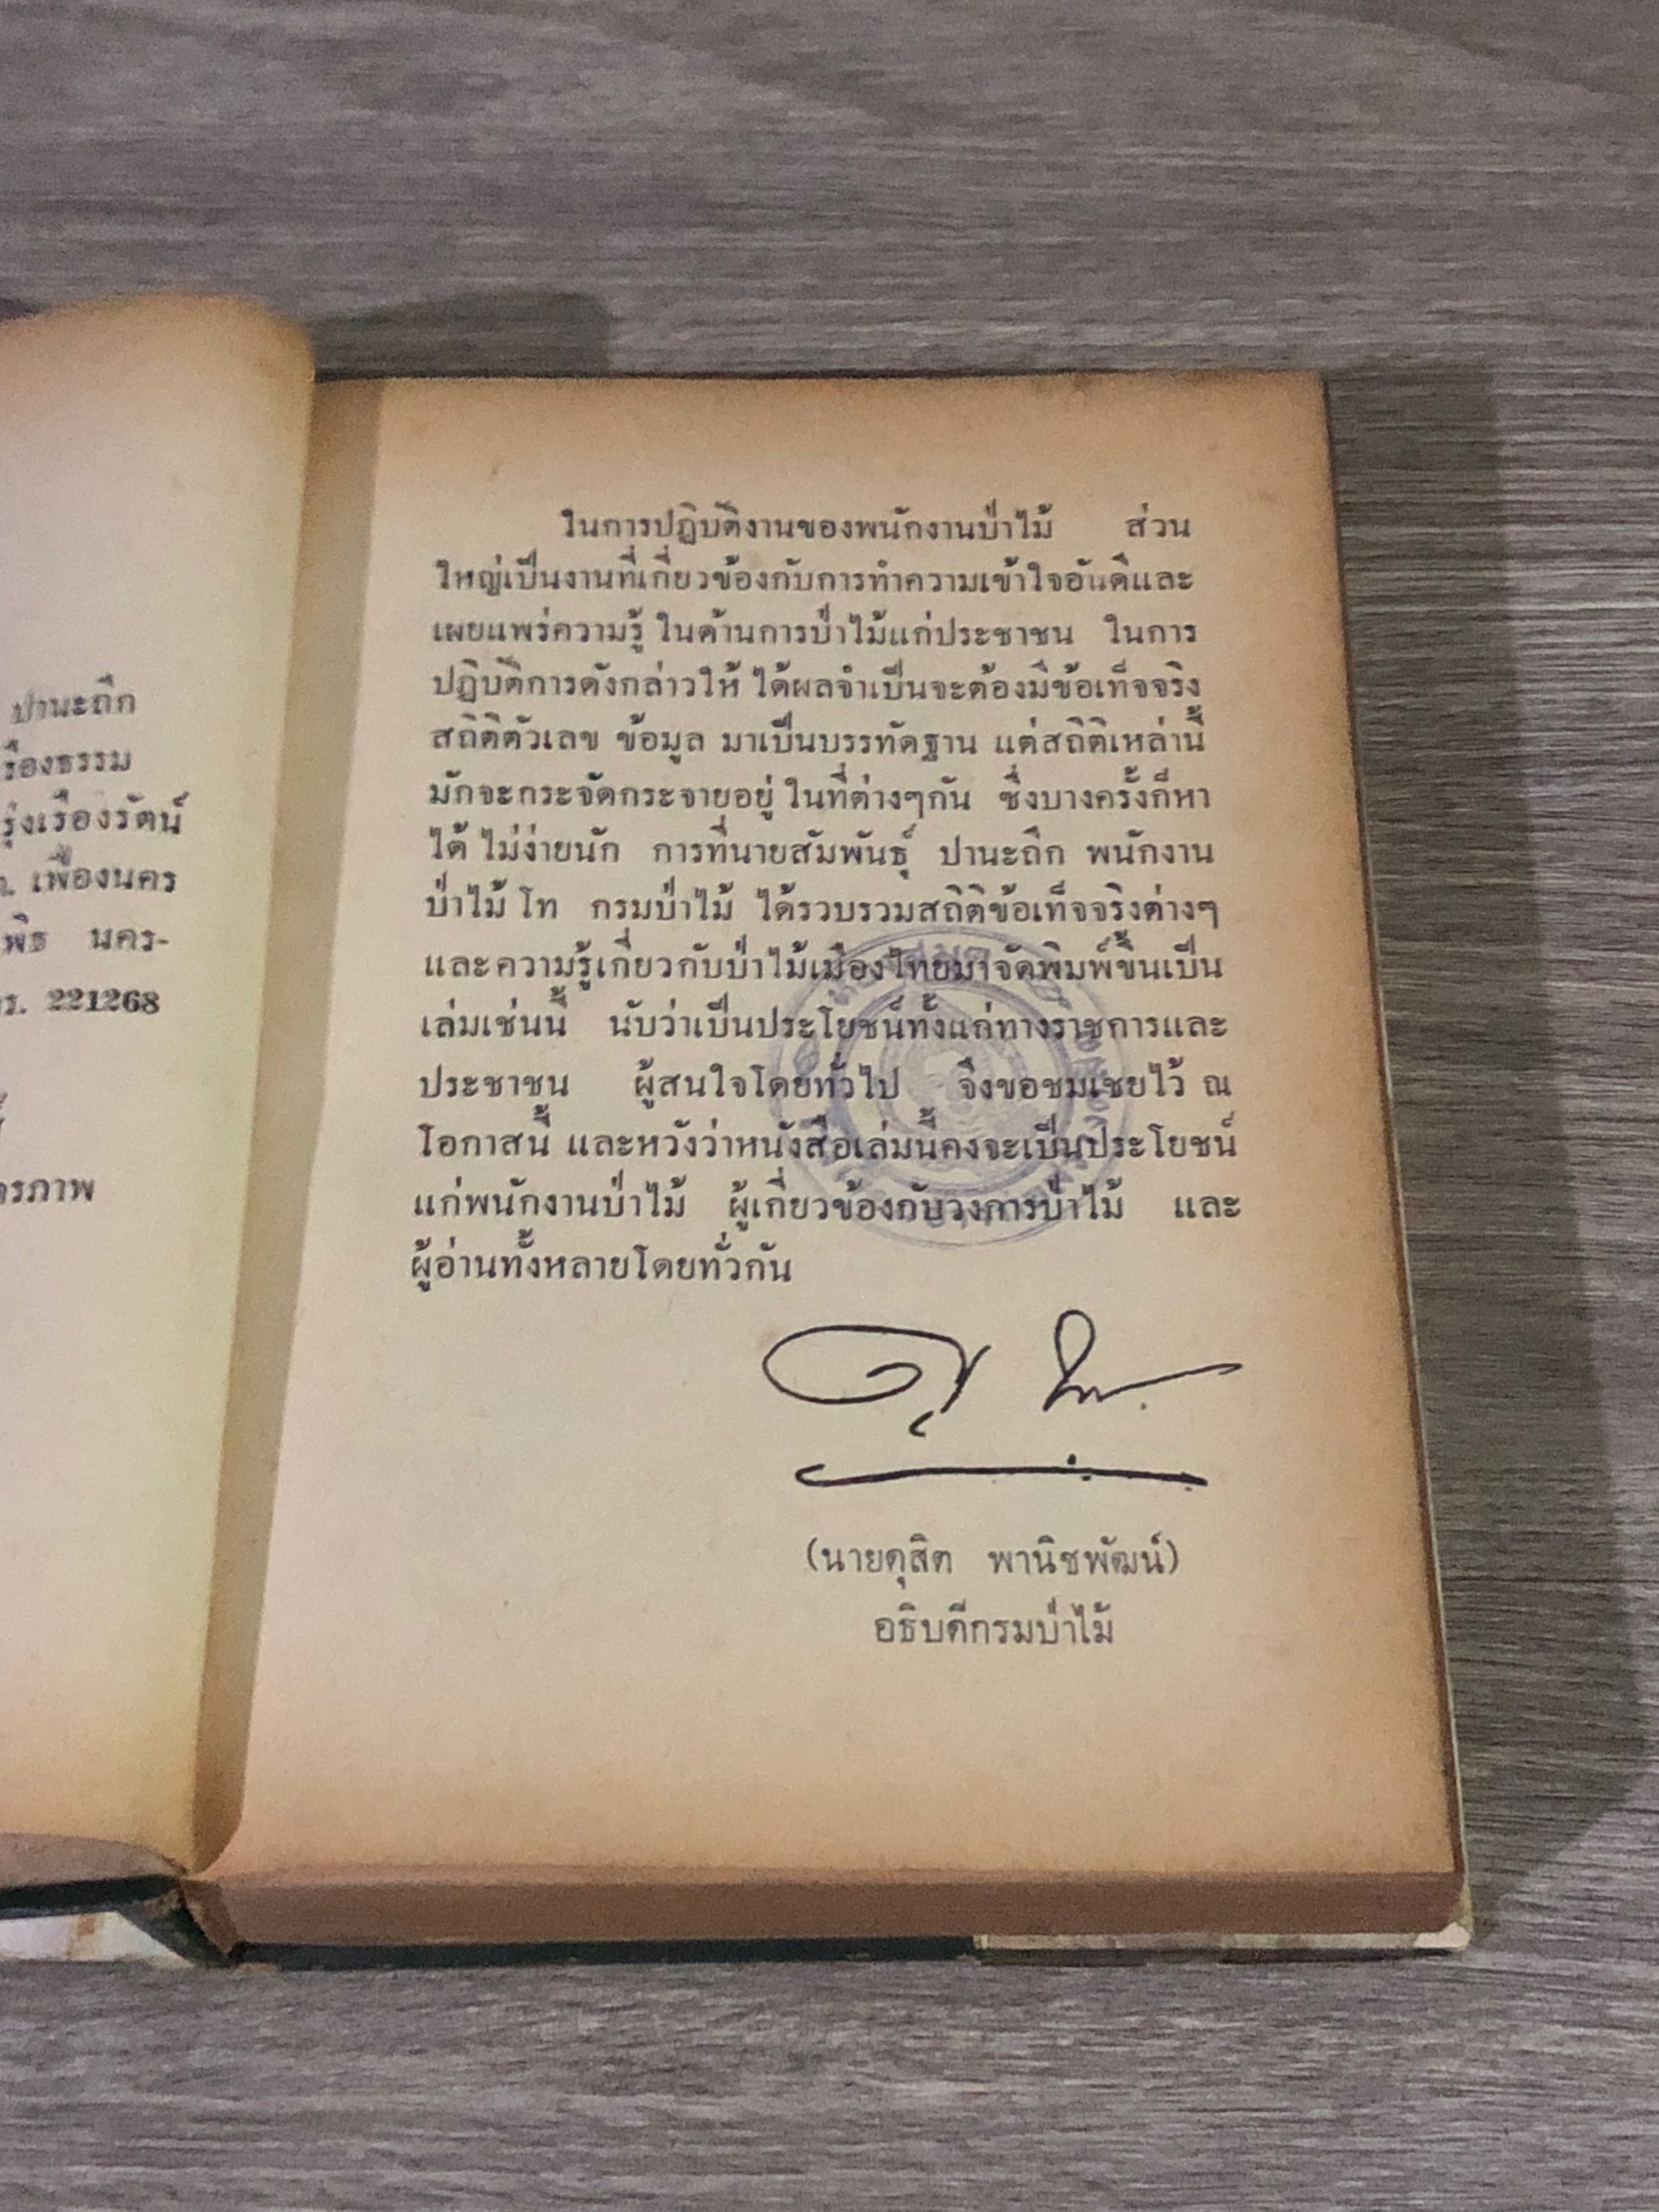 ปานะถึก
รุ่งเรืองรัตน์
เฟื่องนคร
นคร-
221268
ในการปฏิบัติงานของพนักงานป่าไม้ ส่วน
ใหญ่เป็นงานที่เกี่ยวข้องกับการทำความเข้าใจอันดีและ
เผยแพร่ความรู้ ในด้านการป่าไม้แก่ประชาชน ในการ
ปฏิบัติการดังกล่าวให้ ได้ผลจำเป็นจะต้องมีข้อเท็จจริง
สถิติตัวเลข ข้อมูล มาเป็นบรรทัดฐาน แต่สถิติเหล่านี้
มักจะกระจัดกระจายอยู่ ในที่ต่างๆกัน ซึ่งบางครั้งก็หา
ได้ ไม่ง่ายนัก การที่นายสัมพันธุ์ ปานะถึก พนักงาน
ป่าไม้ โท กรมป่าไม้ ได้รวบรวมสถิติข้อเท็จจริงต่างๆ
และความรู้เกี่ยวกับป่าไม้เมืองไทยมาจัดพิมพ์ขึ้นเป็น
เล่มเช่นนี้ นับว่าเป็นประโยชน์ทั้งแก่ทางราชการและ
ประชาชน ผู้สนใจโดยทั่วไป จึงขอชมเชยไว้ ณ
โอกาสนี้ และหวังว่าหนังสือเล่มนี้คงจะเป็นประโยชน์
แก่พนักงานป่าไม้ ผู้เกี่ยวข้องกับวงการป่าไม้ และ
ผู้อ่านทั้งหลายโดยทั่วกัน
(นายดุสิต พานิชพัฒน์)
อธิบดีกรมป่าไม้